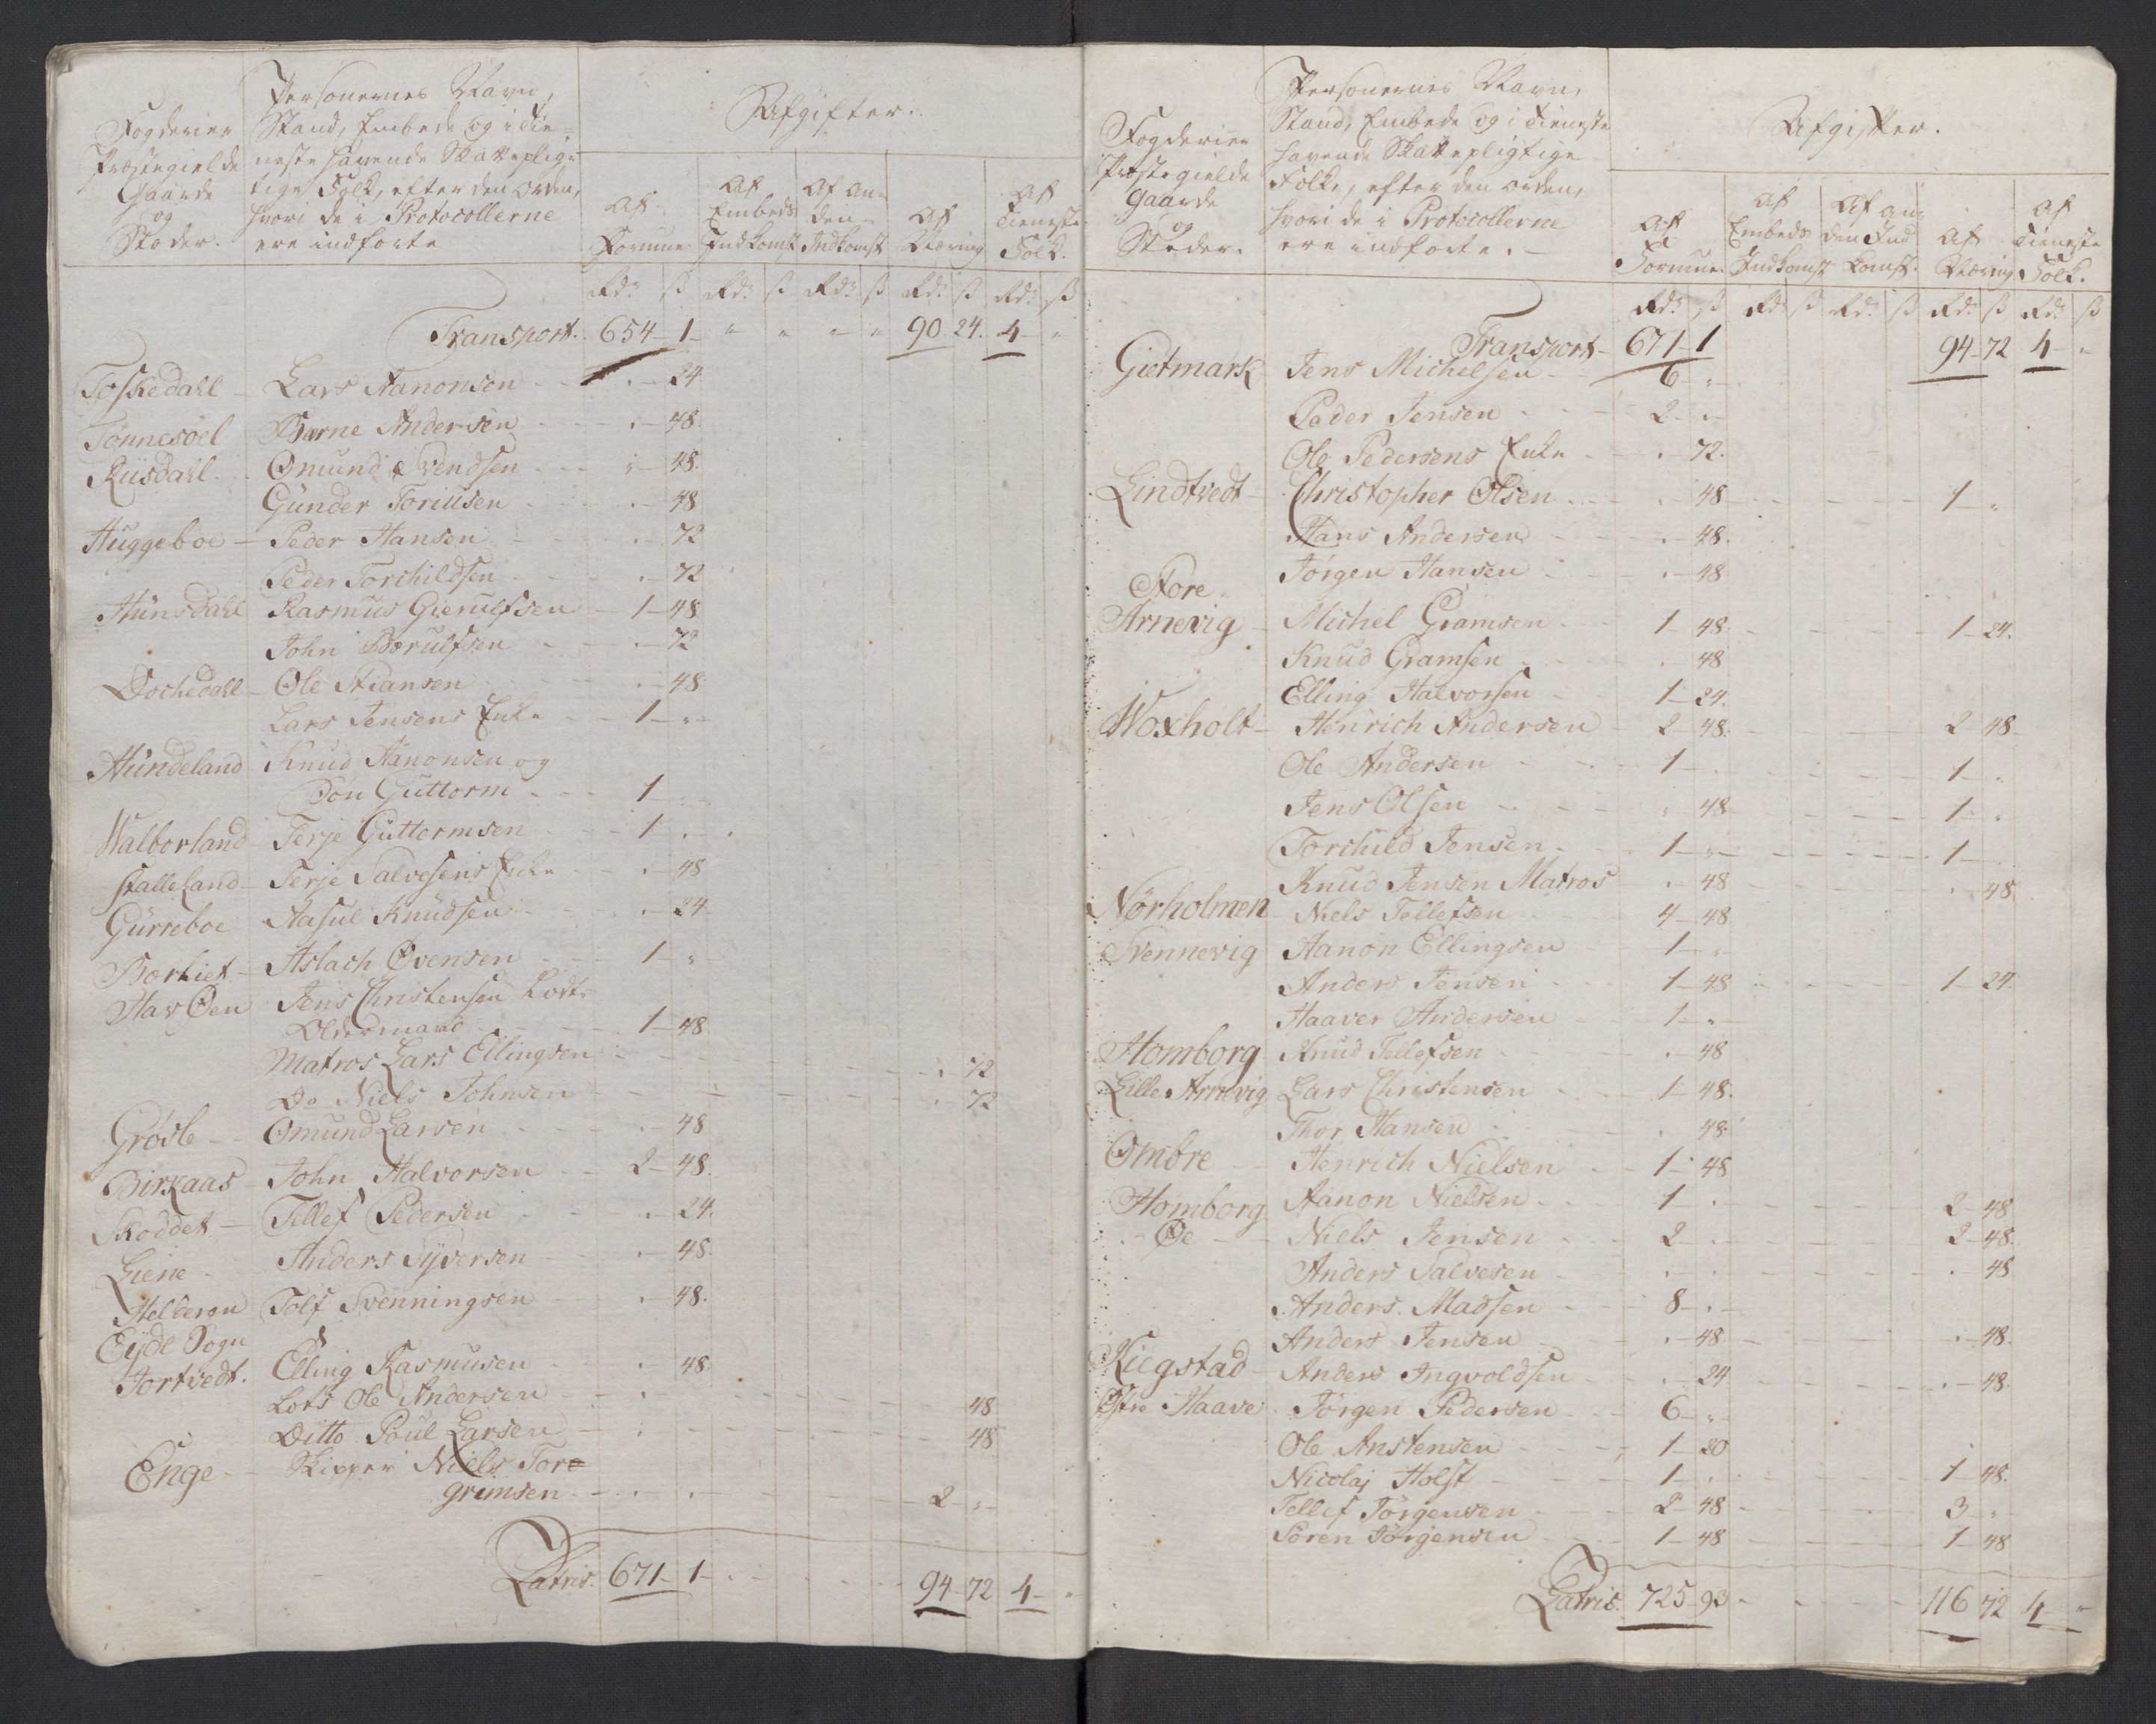 Fogderier
Præstegielde
Gaarde
og
Stæder.
Personernes Navn,
Stand, Embede og i Tie-
neste havende Skattepligt-
tige Folk, efter den Orden,
hvori de i Protocollerne
ere indførte
Afgifter.
Af Formue
Af Embeds Indkomst
Af an- den Indkomst
Af Næring
Af Tieneste Folk.
Rdr ß Rdr ß Rdr ß Rdr ß Rdr ß
Transport. 654 - 1 - " " " " 90 24. 4 - "
Toskedahl - Lars Aanonsen - - . - 24
Tønnesöel - Barne Andersen - - . - 48.
Riisdahl. - Omund Svendsen - - " - 48.
Gunder Toriusen - - . - 48
Huggeboe - Peder Hansen - - . - 72
Peder Torchildsen - - . - 72
Hunsdahl Rasmus Gierulfsen - 1 - 48
John Berulfsen - - . - 72
Dochedahl - Ole Stiansen - . - 48
Lars Jensens Enke - - 1 - " -
Hundeland Knud Aanonsen og
Søn Guttorm - - - 1 " -
Walborland Terje Guttormsen - - 1 . - .
Stalleland - Terje Salvesens Enke - . - 48
Gurreboe Aasul Knudsen - - . - 24
Borhiet - Aslach Ovensen - - 1 - "
Hav Øen Jens Christensen Lods
Oldermand - - - 1 - 48
Matros Lars Ellingsen - - - - . 72
Do Niels Johnsen - - - - . 72
Grösle - - Omund Larsen - - . - 48
Birkaas - John Halvorsen - - 2 - 48.
Skoddet - Tellef Pedersen - - . - 24.
Liene - Anders Syversen - - . - 48
Helleren Tolf Svenningsen - - . - 48.
Eyde Sogn
Jortvedt. Elling Rasmusen - - . - 48
Lots Ole Andersen - - . - - - - 48
Ditto Poul Larsen - - . - - - - 48
Enge - - Skipper Niels Tor=
grimsen - - . - . - - - - 2 - " -
Latris. 671 - 1 - . - - - 94 - 72 4 - .
Fogderier
Præstegielde
Gaarde
og
Stæder.
Personernes Navn,
Stand, Embede og i Tieneste
havende Skattepligtige
Folk, efter den Orden,
hvori de i Protocollerne
ere indførte. -
Afgifter.
Af Formue.
Af Embeds Indkomst
Af an- den Ind komst.
Af Næring
Af Tieneste Folk.
Rdr ß Rdr ß Rdr ß Rdr ß Rdr ß
Transport - 671 - 1 94 - 72 4 - "
Gietmark Jens Michelsen - - 6 - " -
Peder Jensen - - - 2 - . -
Ole Pedersens Enke - . - 72.
Lindtvedt - Christopher Olsen - - . 48 - - - 1 - "
Hans Andersen - - . - 48.
Jørgen Hansen - - . - 48
Store
Arnevig - Michel Gramsen - - 1 - 48 - - - 1 - 24.
Knud Gramsen - - . - 48
Elling Halvorsen - - 1 - 24.
Woxholt - Henrich Andersen - 2 - 48. - - - 2 48 -
Ole Andersen - - . - 1 - . - - - 1 - "
Jens Olsen - - - " 48 - - - 1 - "
Torchild Jensen - - 1 - " - - - - 1 -
Knud Jensen Matros . - 48 - - - . - 48
Nörholmen - Niels Tellefsen - - 4 - 48
Svennevig Aanon Ellingsen - - 1 - "
Anders Jensen - - 1 - 48 - - - 1 - 24.
Haaver Andersen - - 1 - "
Homborg - Knud Tellefsen - - . - 48
Lille Arnevig Lars Christensen - - 1 - 48.
Thor Hansen - - . 48
Ombre - - Henrich Nielsen - - 1 - 48
Homborg Aanon Nielsen - - 1 . - - - 2 - 48
Øe - - Niels Jensen - - 2 . - - - 2 - 48.
Anders Salvesen - - . . - - - . - 48
Anders Madsen - - - 8 - . -
Anders Jensen - - . - 48 - - - . - 48.
Riegstad - Anders Ingvoldsen - - . - 24 - - - . - 48.
Østre Haave - Jørgen Pedersen - - 6 - " -
Ole Anstensen - - - 1 - 20
Nicolaj Holst - - - 1 - . - - - 1 - 48.
Tellef Jørgensen - - 2 - 48 - - - 3 - " -
Sören Jørgensen - - 1 - 48 - - - 1 - 48
Latris. 725 - 93 - . - - - 116 72 4 - "